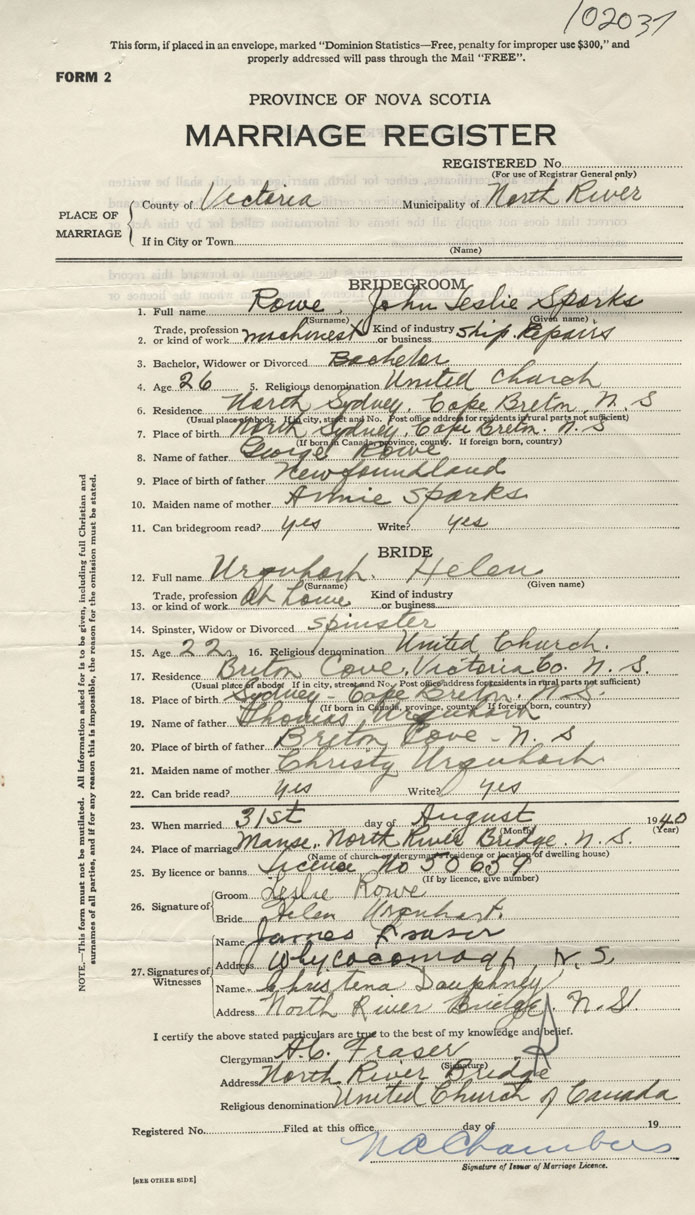 102037
This form, if placed in an envelope, marked “Dominion Statistics—Free, penalty for improper use $300,” and
properly addressed will pass through the Mail “FREE”.
FORM 2
PROVINCE OF NOVA SCOTIA
MARRIAGE REGISTER
REGISTERED No.
(For use of Registrar General only)
PLACE OF MARRIAGE
County of Victoria Municipality of North River
If in City or Town
(Name)
BRIDEGROOM
1. Full name Rowe, John Leslie Sparks
(Surname) (Given name)
2. Trade, profession or kind of work machinest Kind of industry or business ship Repairs
3. Bachelor, Widower or Divorced Bachelor
4. Age 26 5. Religious denomination United Church
6. Residence North Sydney, Cape Breton N. S
(Usual place of abode. If in city, street and No. Post office address for residents in rural parts not sufficient)
7. Place of birth North Sydney, Cape Breton. N. S
(If born in Canada, province, county. If foreign born, country)
8. Name of father George Rowe
9. Place of birth of father Newfoundland
10. Maiden name of mother Annie Sparks
11. Can bridegroom read? yes Write? yes
BRIDE
12. Full name Urquhart. Helen
(Surname) (Given name)
13. Trade, profession or kind of work at home Kind of industry or business
14. Spinster, Widow or Divorced spinster
15. Age 22 16. Religious denomination United Church.
17. Residence Breton Cove, Victoria Co. N. S.
(Usual place of abode. If in city, street and No. Post office address for residents in rural parts not sufficient)
18. Place of birth Sydney - Cape Breton. N. S.
(If born in Canada, province, county. If foreign born, country)
19. Name of father Thomas Urquhart
20. Place of birth of father Breton Cove - N. S
21. Maiden name of mother Christy Urquhart
22. Can bride read? yes Write? yes
23. When married 31st day of August 1940
(Month) (Year)
24. Place of marriage Manse, North River Bridge. N. S.
(Name of church or clergyman's residence or location of dwelling house)
25. By licence or banns Licence No 50659
(If by licence, give number)
26. Signature of
Groom Leslie Rowe
Bride Helen Urquhart.
27. Signatures of Witnesses
Name James Fraser
Address Whycocomagh, N. S.
Name Christena Dauphney
Address North River Bridge, N. S.
I certify the above stated particulars are true to the best of my knowledge and belief.
Clergyman A. C. Fraser
(Signature)
Address North River Bridge
Religious denomination United Church of Canada
Registered No. Filed at this office day of 19
N A Chambers
Signature of Issuer of Marriage Licence.
[SEE OTHER SIDE]
NOTE.—This form must not be mutilated. All information asked for is to be given, including full Christian and
surnames of all parties, and if for any reason this is impossible, the reason for the omission must be stated.